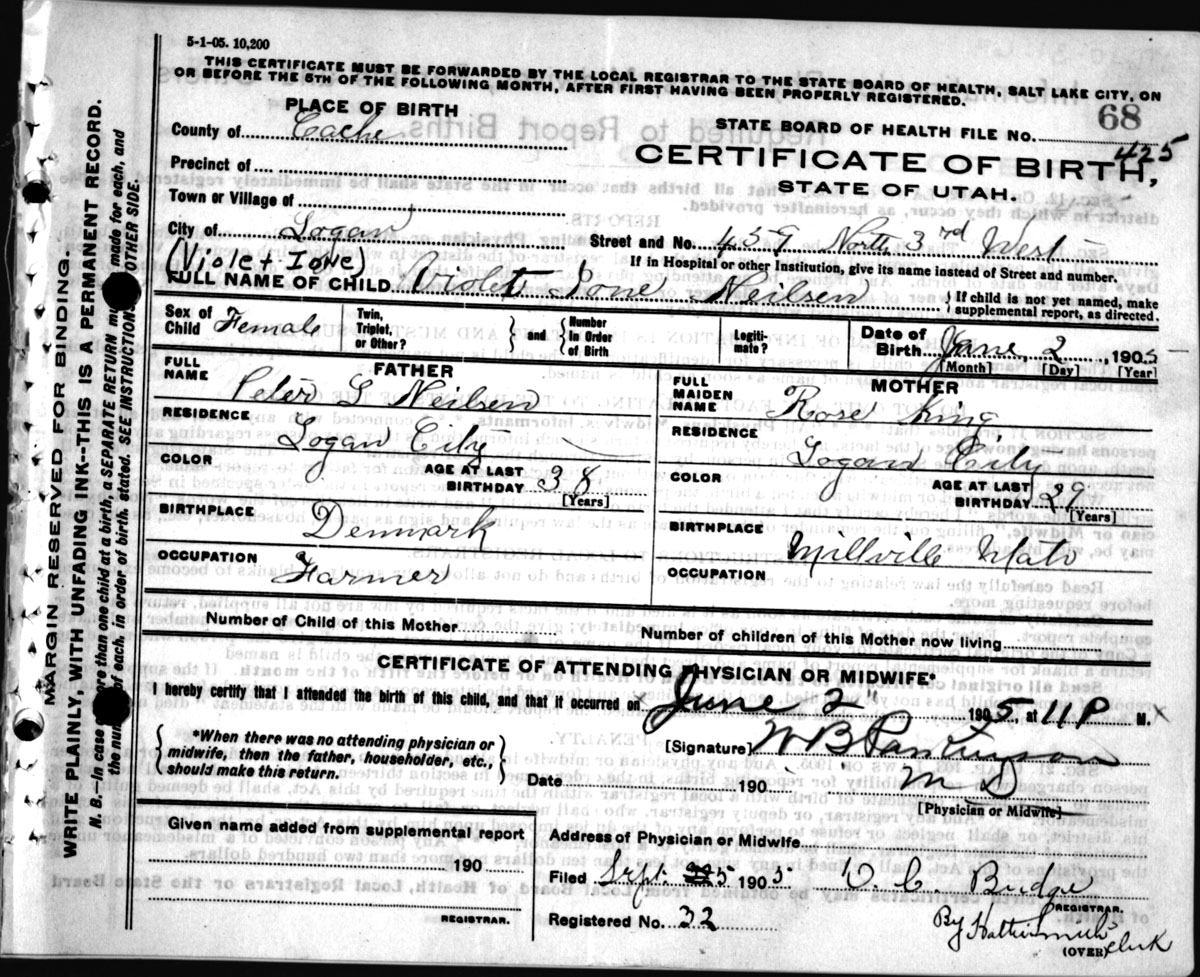 5-1-05. 10,200
THIS CERTIFICATE MUST BE FORWARDED BY THE LOCAL REGISTRAR TO THE STATE BOARD OF HEALTH, SALT LAKE CITY, ON
OR BEFORE THE 5TH OF THE FOLLOWING MONTH, AFTER FIRST HAVING BEEN PROPERLY REGISTERED.
PLACE OF BIRTH
County of Cache
Precinct of
Town or Village of
City of Logan
STATE BOARD OF HEALTH FILE NO. 68
425
CERTIFICATE OF BIRTH,
STATE OF UTAH.
Street and No. 459 North 3rd West
If in Hospital or other Institution, give its name instead of Street and number.
(Violet Ione)
FULL NAME OF CHILD Violet Ione Neilsen } If child is not yet named, make supplemental report, as directed.
Sex of Child Female
Twin, Triplet, or Other?
} and {
Number in Order of Birth
Legitimate?
Date of Birth June 2, 1905
[Month] [Day] [Year]
FATHER
FULL NAME Peter S Neilsen
RESIDENCE Logan City
COLOR
AGE AT LAST BIRTHDAY 38
[Years]
BIRTHPLACE Denmark
OCCUPATION Farmer
MOTHER
FULL MAIDEN NAME Rose King
RESIDENCE Logan City
COLOR
AGE AT LAST BIRTHDAY 29
[Years]
BIRTHPLACE Millville
OCCUPATION
Number of Child of this Mother
Number of children of this Mother now living
CERTIFICATE OF ATTENDING PHYSICIAN OR MIDWIFE*
I hereby certify that I attended the birth of this child, and that it occurred on June 2" 1905, at 11 P M.
{ *When there was no attending physician or
midwife, then the father, householder, etc.,
should make this return. }
[Signature] W B Parkinson
M D
Date 190
[Physician or Midwife]
Given name added from supplemental report
190
REGISTRAR.
Address of Physician or Midwife
Filed Sept. 5 1905
O. C. Budge
REGISTRAR.
Registered No. 32
By Hattie Smith
Clerk
(OVER)
MARGIN RESERVED FOR BINDING.
WRITE PLAINLY, WITH UNFADING INK--THIS IS A PERMANENT RECORD.
N. B.--In case more than one child at a birth, a SEPARATE RETURN must be made for each, and
the number of each, in order of birth, stated. SEE INSTRUCTIONS OTHER SIDE.